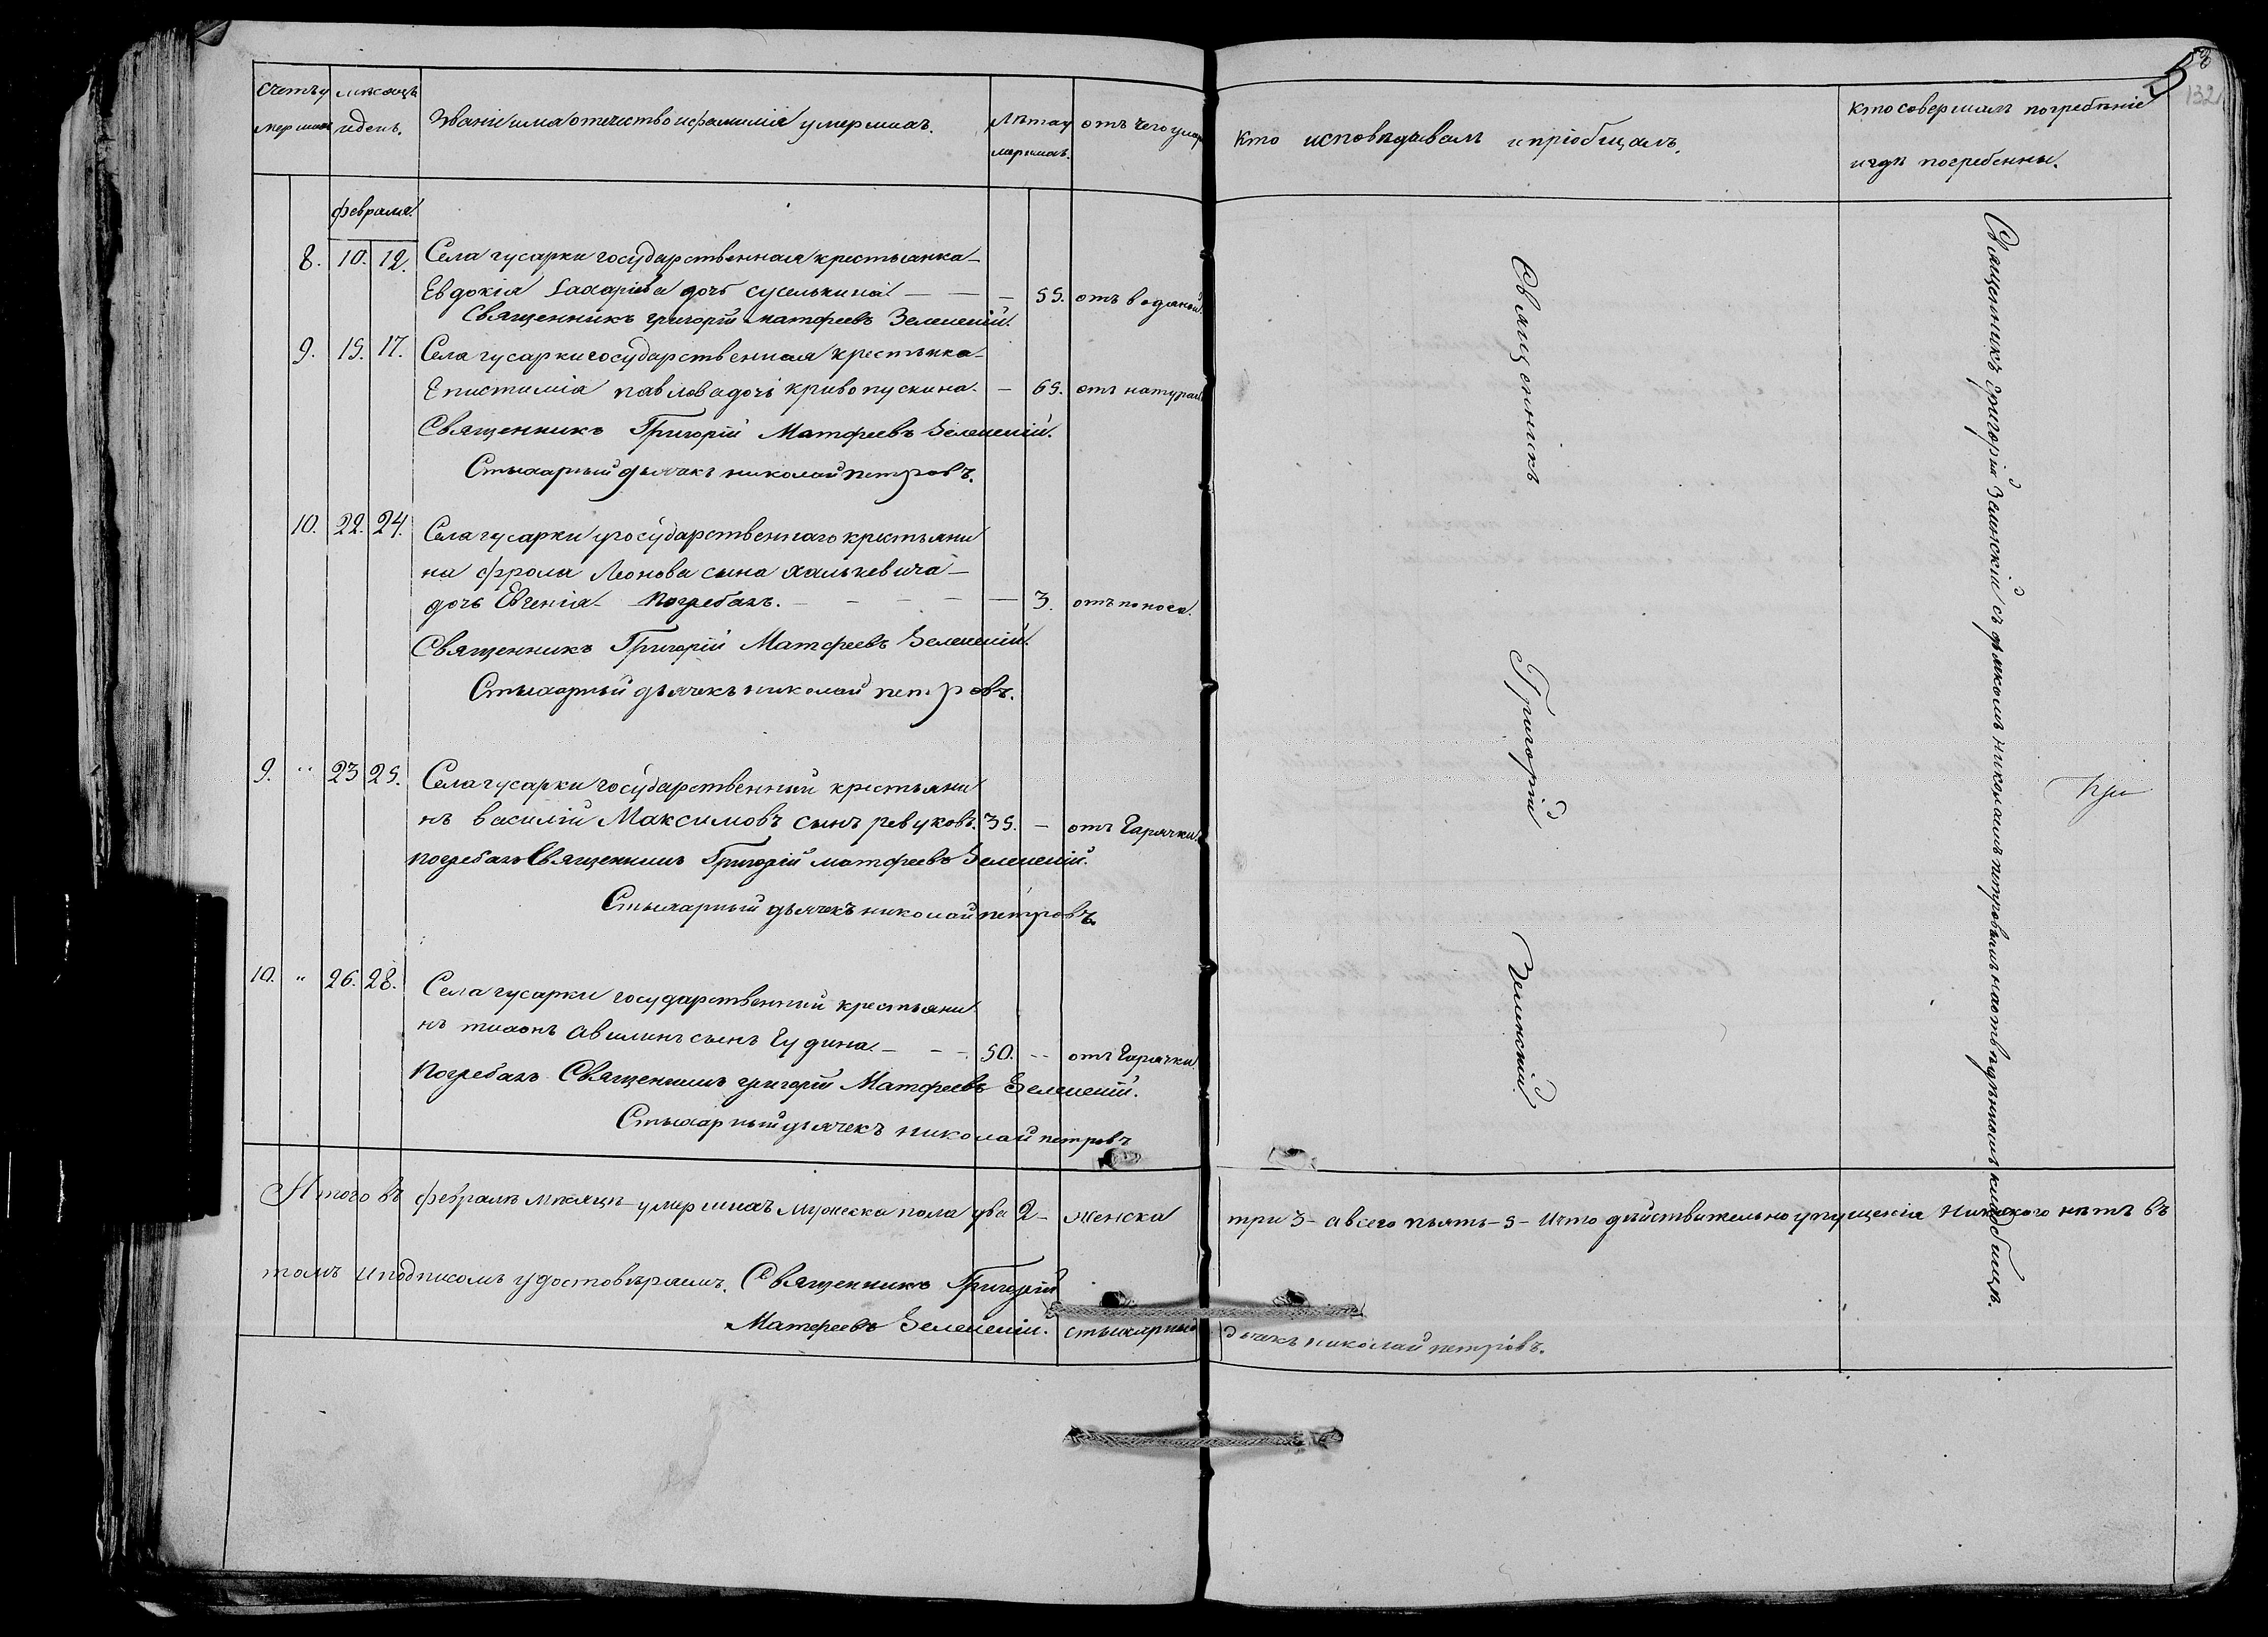 Счетъ умершихъ
мѣсяцъ и день.
Званіе имя отечество и фамилія умершихъ.
Лѣта умершихъ.
отъ чего умеръ
Кто исповѣдывалъ и пріобщалъ.
Кто совершалъ погребеніе
и гдѣ погребенны.
132
февраля.
8. 10. 12. Села гусарки государственная крестьянка
Евдокія Захаріева дочь суселькина — — — 55. отъ водяной
Священникъ григорій матфеевъ Зеленскій.
9. 15. 17. Села гусарки государственная крестьянка
Епистимія павлова дочь кривопускина — 65. отъ натурал
Священникъ Григорій Матфеевъ Зеленскій.
Стихарный дьячекъ николай петровъ.
10. 22. 24. Села гусарки у государственнаго крестьяни
на фрола Леонова сына халькевича —
дочь Евгенія — погребалъ. — — — — — 3. отъ поноса.
Священникъ Григорій Матфеевъ Зеленскій.
Стихарный дьячекъ николай петровъ.
9. " 23 25. Села гусарки государственный крестьяни
нъ василій Максимовъ сынъ ревуковъ. 35. — отъ Гарячки
погребалъ Священникъ Григорій матфеевъ Зеленскій.
Стихарный дьячекъ николай петровъ.
10. " 26. 28. Села гусарки государственный крестьяни
нъ тихонъ Авилинъ сынъ Гудина. — — 50. -- отъ Гарячки
Погребалъ Священникъ григорій Матфеевъ Зеленскій.
Стихарный дьячекъ николай петровъ
Священникъ Григорій Зеленскій
Священникъ Григорій Зеленскій съ дьякомъ николаемъ петровымъ на отведенномъ кладбищѣ.
При
Итого въ февралѣ мѣсяцѣ умершихъ мужеска пола два 2 — женска три 3 — а всего пять — 5 — И что дѣйствительно упущенія никакого нѣтъ въ
томъ и подписомъ удостовѣряемъ. Священникъ Григорій
Матфеевъ Зеленскій. стихарный дьячекъ николай петровъ.